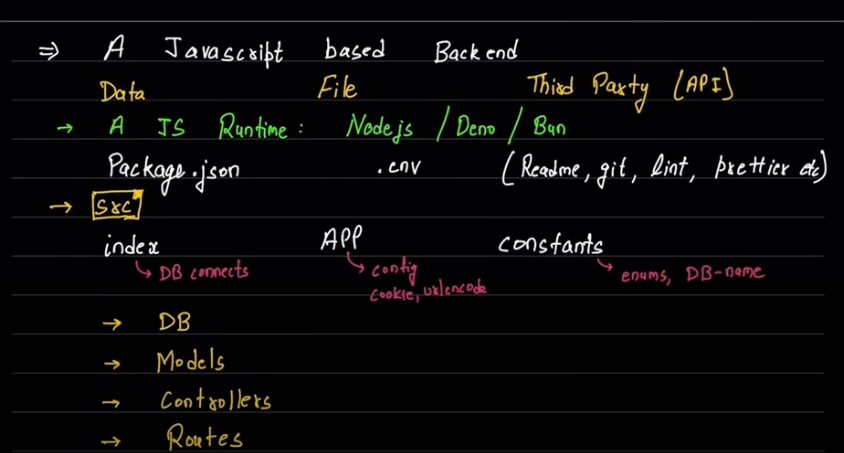 ⇒ A Javascript based Backend
Data File Third Party (API)
→ A JS Runtime: Nodejs / Deno / Bun
Package.json .env (Readme, git, lint, prettier etc)
→ src
index APP constants
↳ DB connects ↳ config ↳ enums, DB-name
cookie, urlencode
→ DB
→ Models
→ Controllers
→ Routes